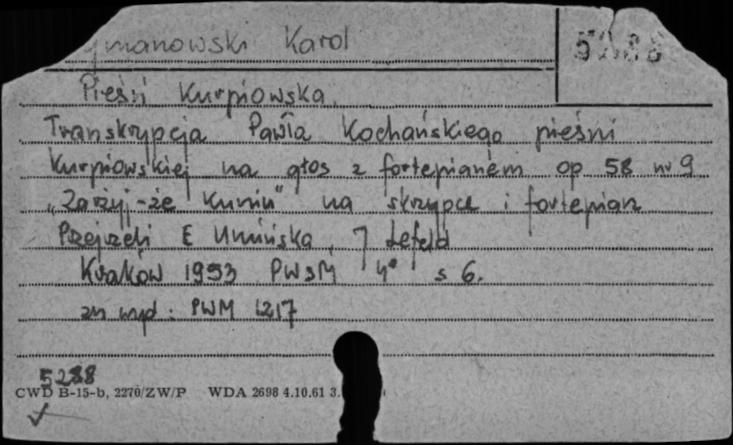 ymanowski Karol
5288
Pieśń Kurpiowska.
Transkrypcja Pawła Kochańskiego pieśni
Kurpiowskiej na głos z fortepianem op 58 nr 9
„Zarżyj-że kuniu" na skrzypce i fortepian
Przejrzeli E Umińska, J Lefeld
Kraków 1953 PWSM 4° s 6.
zn wyd: PWM 1217
5288
CWD B-15-b, 2270/ZW/P WDA 2698 4.10.61 3.